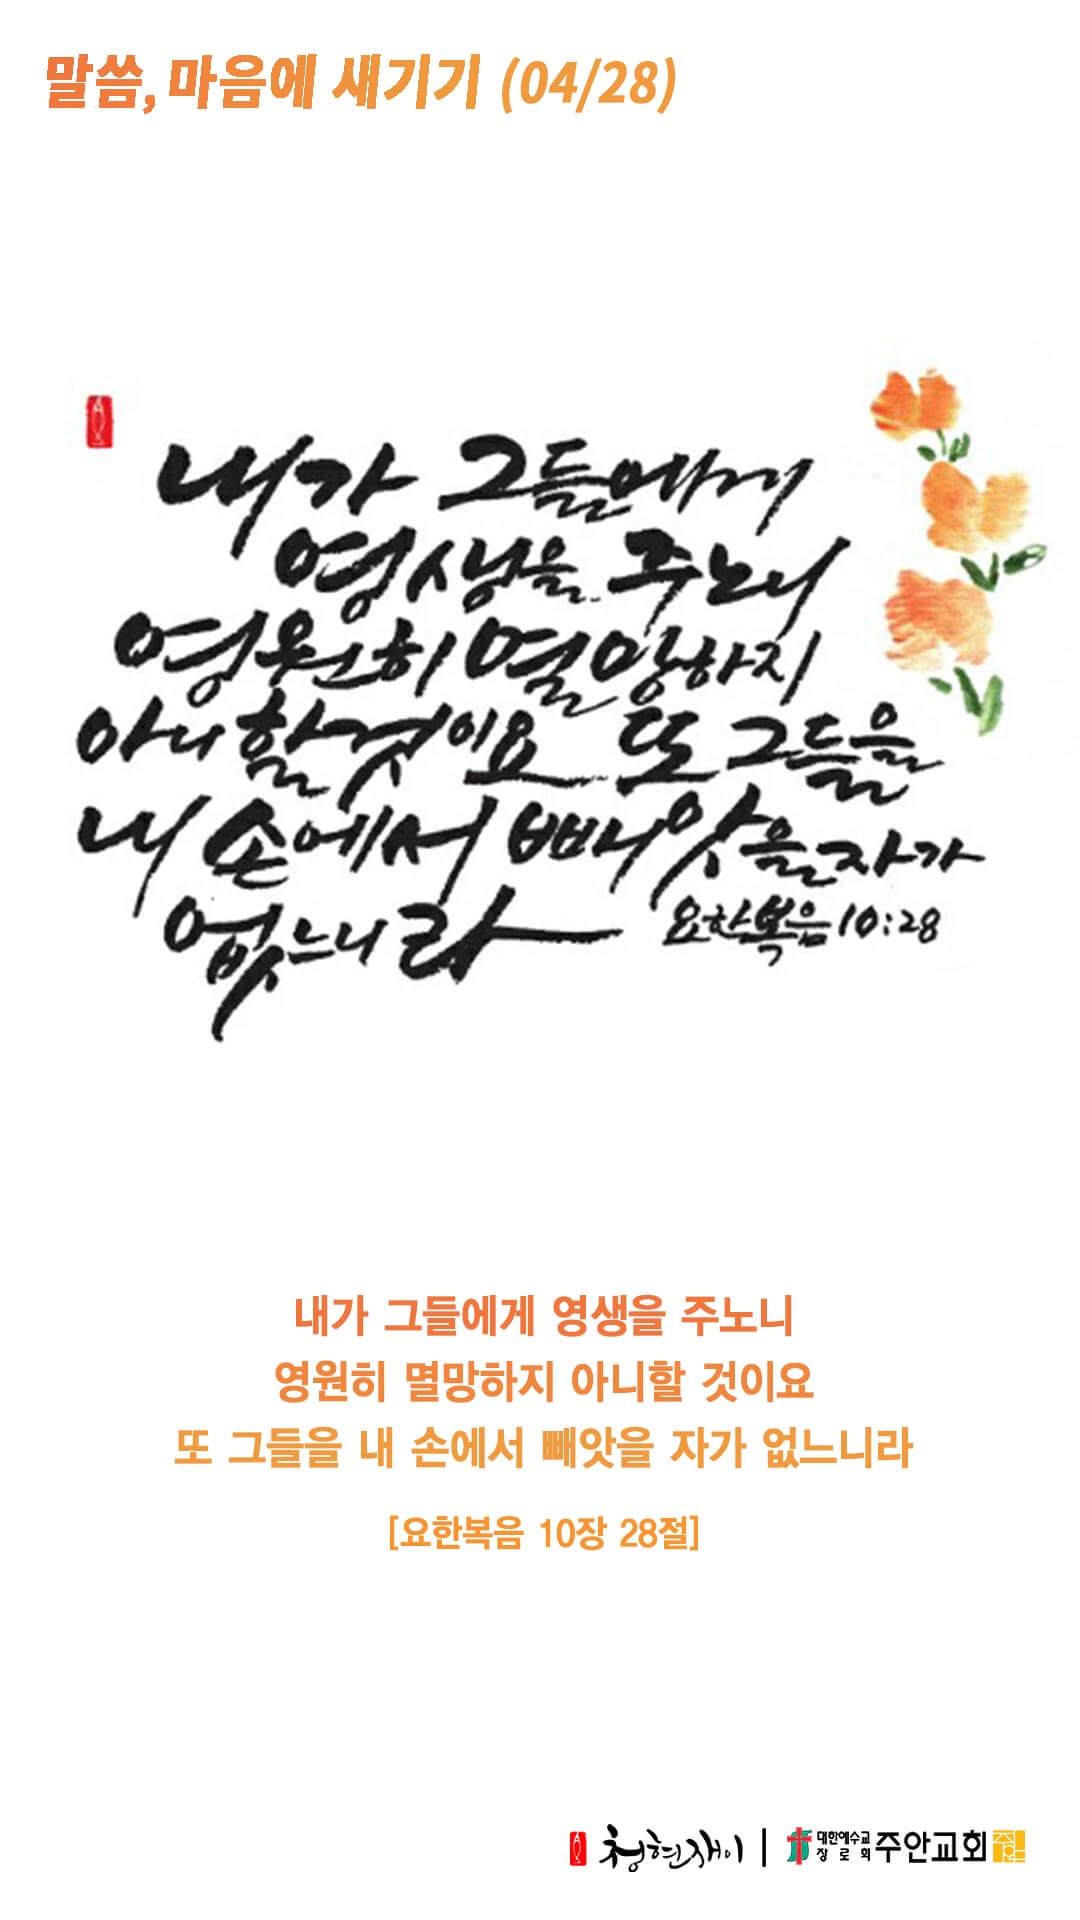 말씀, 마음에 새기기 (04/28)
내가 그들에게
영생을 주노니
영원히 멸망하지
아니할것이요 또 그들을
내 손에서 빼앗을 자가
없느니라 요한복음 10:28
내가 그들에게 영생을 주노니
영원히 멸망하지 아니할 것이요
또 그들을 내 손에서 빼앗을 자가 없느니라
[요한복음 10장 28절]
청현재이 | 대한예수교 장로회 주안교회